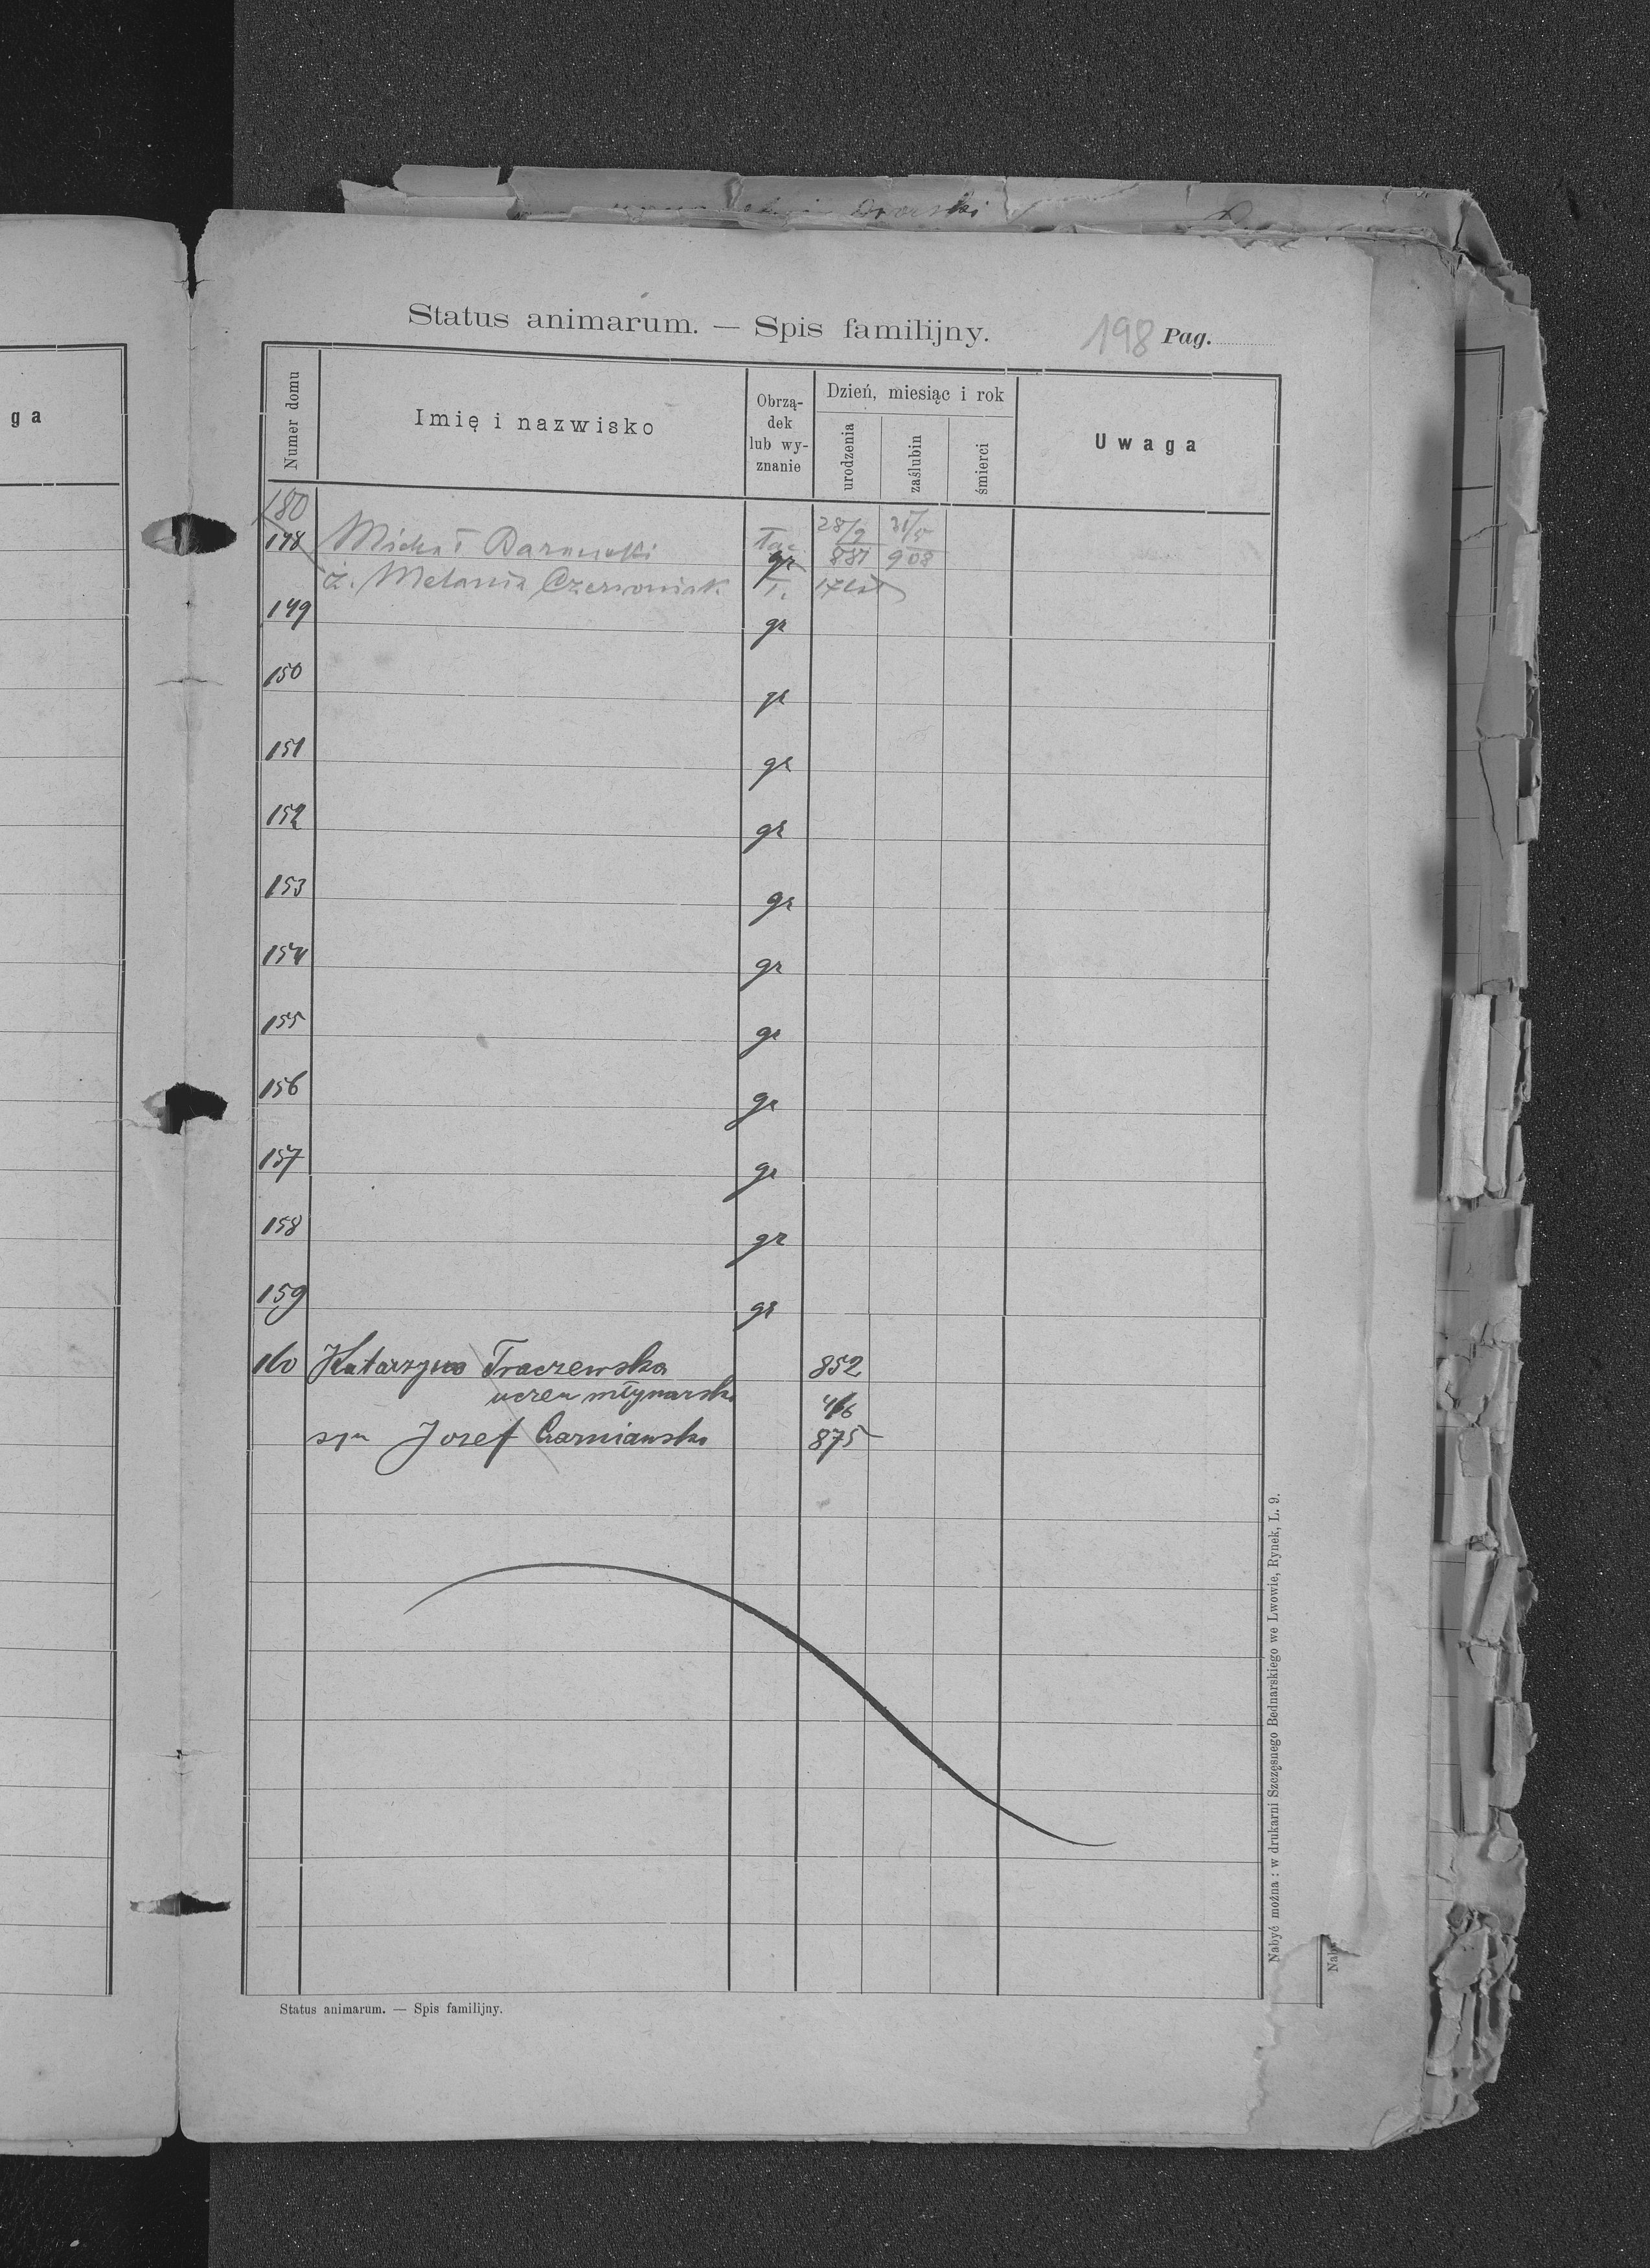 ga
Status animarum. — Spis familijny.
198 Pag.
Numer domu
Imię i nazwisko
Obrzą-
dek
lub wy-
znanie
Dzień, miesiąc i rok
urodzenia
zaślubin
śmierci
Uwaga
180
148 Michał gr 28/9 881 31/5 908
ż. Melania Czerwoniak
149 gr
150 gr
151 gr
152 gr
153 gr
154 gr
155 gr
156 gr
157 gr
158 gr
159 gr
160 Katarzyna Traczewska 852
uczen młynarski
syn Jozef Czarniawski 875
Status animarum. — Spis familijny.
Nabyć można: w drukarni Szczęsnego Bednarskiego we Lwowie, Rynek, L. 9.